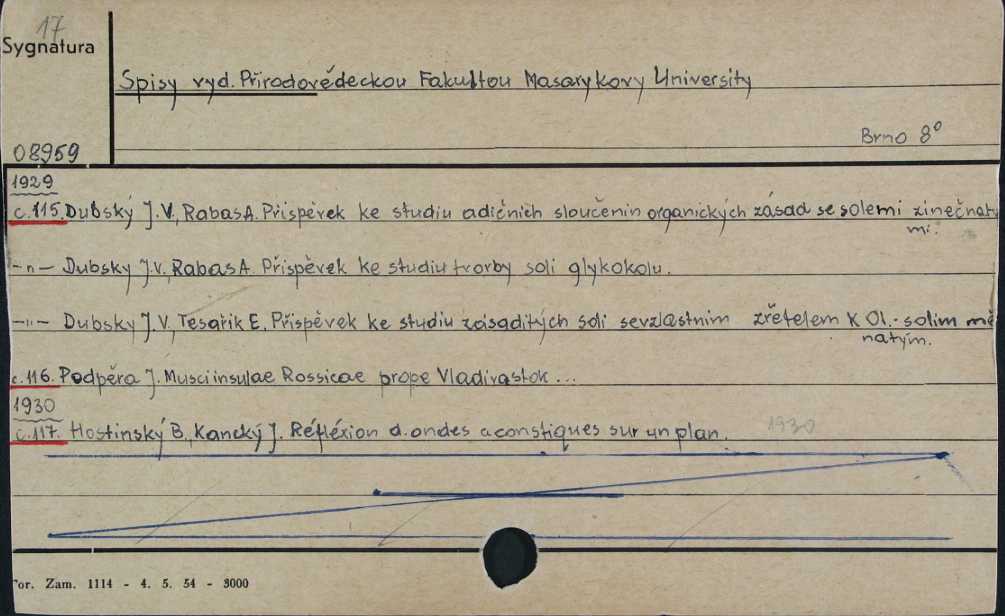 17
Sygnatura
Spisy vyd. Přírodovědeckou Fakultou Masarykovy University
Brno 8°
08959
1929
c.115. Dubský J.V., Rabas A. Přispěvek ke studiu adičních sloučenin organických zásad se solemi zinečnaty
mi.
-"- Dubsky J.V. Rabas A. Přispěvek ke studiu tvorby soli glykokolu.
-"- Dubsky J.V. Tesařik E. Přispěvek ke studiu zásaditých soli sevzlastnim zřetelem k Ol.-solim mě
natým.
c.116. Podpěra J. Musci insulae Rossicae prope Vladivastok...
1930
c.117. Hostinský B., Kancký J. Réfléxion d.ondes aconstiques sur un plan. 1930
Tor. Zam. 1114 - 4. 5. 54 - 3000